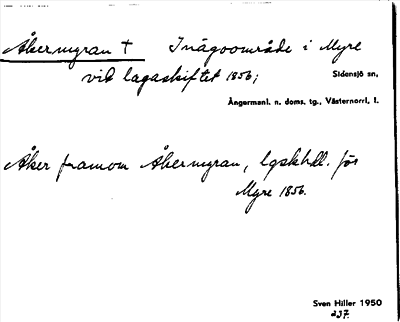 Åkermyran † Inägoområde i Myre
vid lagaskiftet 1856;
Sidensjö sn,
Ångermanl. n. doms. tg., Västernorrl. l.
Åker framom Åkermyran, lgskhdl. för
Myre 1856.
Sven Hiller 1950
237.